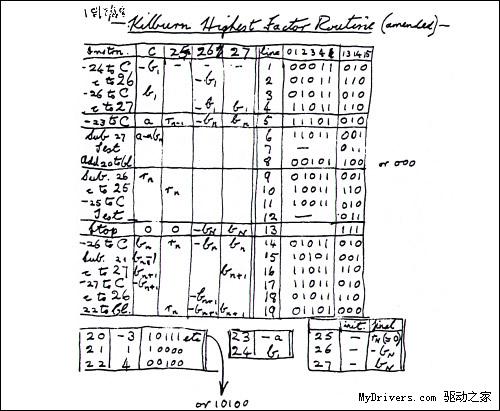 18/7/48
Kilburn Highest Factor Routine (amended)
Instn. C 25 26 27 line 0 1 2 3 4 5 13 14 15
-24 to C -b₁ - - - 1 00011 010
c to 26 -b₁ 2 01011 110
-26 to C b₁ 3 01011 010
c to 27 -b₁ b₁ 4 11011 110
-23 to C a rₙ₋₁ -bₙ bₙ 5 11101 010
Sub. 27 a-bₙ 6 11011 001
Test 7 - 011
Add 20 to bl. 8 00101 100 or 000
Sub. 26 rₙ 9 01011 001
c to 25 rₙ 10 10011 110
-25 to C 11 10011 010
Test 12 - 011
Stop 0 0 -b_N b_N 13 111
-26 to C bₙ rₙ -bₙ bₙ 14 01011 010
Sub. 21 bₙ₊₁ 15 10101 001
c to 27 bₙ₊₁ bₙ₊₁ 16 11011 110
-27 to C -bₙ₊₁ 17 11011 010
c to 26 -bₙ₊₁ 18 01011 110
22 to bl. rₙ -bₙ₊₁ bₙ₊₁ 19 01101 000
20 -3 10111 etc
21 1 10000
22 4 00100
or 10100
23 -a
24 b₁
init. final
25 - r_N (=0)
26 - -b_N
27 - b_N
MyDrivers.com 驱动之家